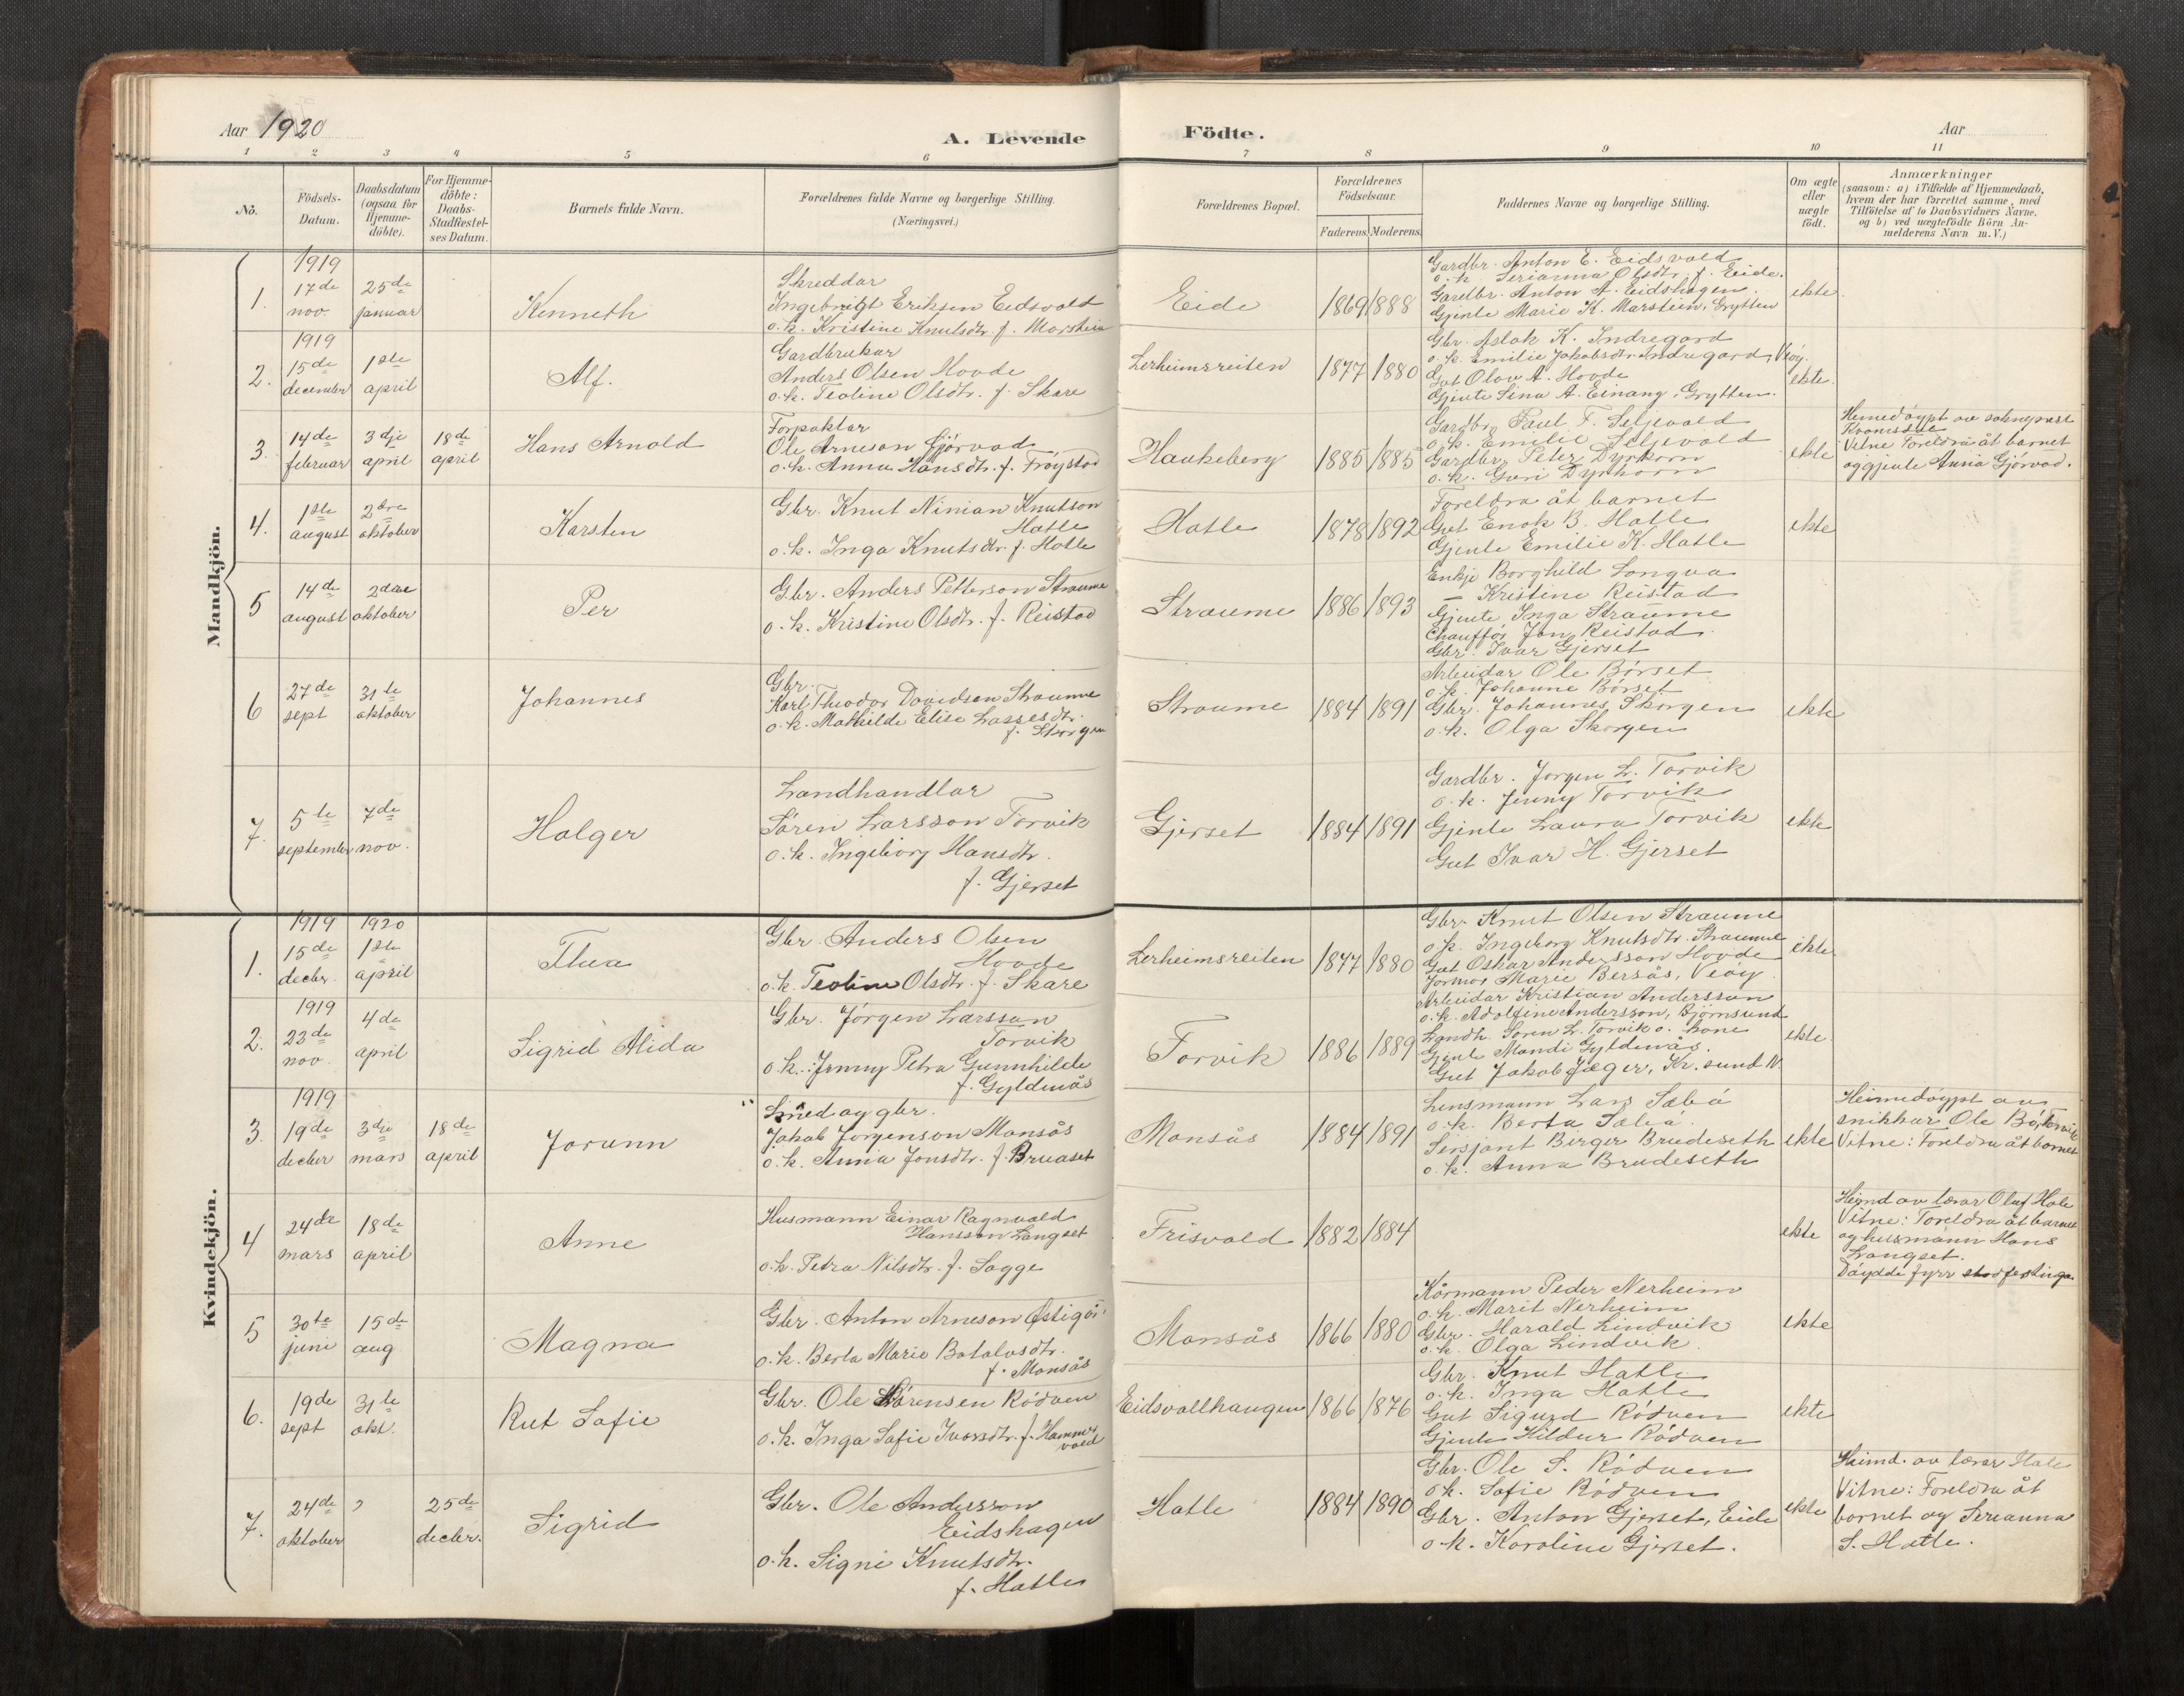 Aar 1920
A. Levende Födte.
Aar
1 2 3 4 5 6 7 8 9 10 11
No.
Födsels-
Datum.
Daabsdatum
(ogsaa for
Hjemme-
döbte).
For Hjemme-
döbte:
Daabs-
Stadfæstel-
ses Datum.
Barnets fulde Navn.
Forældrenes fulde Navne og borgerlige Stilling.
(Næringsvei.)
Forældrenes Bopæl.
Forældrenes
Födselsaar.
Faderens. Moderens.
Faddernes Navne og borgerlige Stilling.
Om ægte
eller
uægte
födt.
Anmærkninger
(saasom: a) i Tilfælde af Hjemmedaab,
hvem der har forrettet samme, med
Tilföielse af to Daabsvidners Navne,
og b) ved uægtefödte Börn An-
melderens Navn m. V.)
Mandkjön.
1.
1919
17de
nov.
25de
januar
Kenneth
Skreddar
Ingebrigt Eriksen Eidsvold
o.k. Kristine Knutsdtr. f. Morstein
Eide
1869 1888
Gardbr. Anton E. Eidsvold
o.k. Serianna Olsdtr. f. Eide.
Gardbr. Anton A. Eidshagen.
Gjente Marie K. Marstein, Grytten
ekte
2.
1919
15de
december
1ste
april
Alf.
Gardbrukar
Anders Olsen Hovde
o.k. Teoline Olsdtr. f. Skare
Lerheimsreiten
1877 1880
Gbr. Aslak K. Indregard
o.k. Emilie Jakobsdtr. Indregard, Veøy.
Gut Olav A. Hovde
Gjente Lina A. Einang, Grytten.
ekte.
3.
14de
februar
3dje
april
18de
april
Hans Arnold
Forpaktar
Ole Arneson Gjørvad
o.k. Anna Hansdtr. f. Frøystad
Haukeberg
1885 1885
Gardbr. Paul F. Seljevold
o.k. Emilie Seljevold
Gardbr. Peter Dyrkorn
o.k. Guri Dyrkorn
ekte
Hemedøypt av sokneprest
Kvamsdal
Vitne Foreldra åt barnet
og gjente Anna Gjørvad.
4.
1ste
august
2dre
oktober
Karsten
Gbr. Knut Ninian Knutson
Hatle
o.k. Inga Knutsdtr. f. Hatle
Hatle
1878 1892
Foreldra åt barnet
Gut Enok B. Hatle
Gjente Emilie K. Hatle
ekte
5
14de
august
2dre
oktober
Per
Gbr. Anders Petterson Straume
o.k. Kristine Olsdtr. f. Reistad
Straume
1886 1893
Enkje Borghild Longva
— Kristine Reistad
Gjente Inga Straume
Chauffør Jon Reistad.
Gbr. Ivar Gjerset
6
27de
sept
31te
oktober
Johannes
Gbr.
Karl Theodor Davidsen Straume
o.k. Mathilde Elise Lassesdtr.
f. Skorgen
Straume
1884 1891
Arbeidar Ole Børset
o.k. Johanne Børset
Gbr. Johannes Skorgen
o.k. Olga Skorgen
ekte
7.
5te
september
7de
nov.
Holger
Landhandlar
Søren Larsson Torvik
o.k. Ingeborg Hansdtr.
f. Gjerset
Gjerset
1884 1891
Gardbr. Jørgen L. Torvik
o.k. Jenny Torvik
Gjente Laura Torvik
Gut Ivar H. Gjerset
ekte
Kvindekjön.
1.
1919
15de
decbr.
1920
1ste
april
Thea
Gbr. Anders Olsen
Hovde
o.k. Teoline Olsdtr. f. Skare
Lerheimsreiten
1877 1880
Gbr. Knut Olsen Straume
o.k. Ingeborg Knutsdtr. Straume
Gut Oskar Andersson Hovde
Jormor Marie Bersås, Veøy
ekte
2.
1919
23de
nov.
4de
april
Sigrid Alida
Gbr. Jørgen Larsson
Torvik
o.k. Jenny Petra Gunnhilde
f. Gyldenås
Torvik
1886 1889
Arbeidar Kristian Andersson
o.k. Adolfine Andersson, Bjørnsund
Landh. Søren L. Torvik o. kone
Gjente Mandi Gyldenås.
Gut Jakob Jæger, Kr.sund N.
ekte.
3.
1919
19de
decbr
3dje
mars
18de
april
Jorunn
Smed og gbr.
Jakob Jørgenson Monsås
o.k. Anna Jonsdtr. f. Bruaset
Monsås
1884 1891
Lensmann Lars Sæbø
o.k. Berta Sæbø.
Sersjant Birger Brudeseth
o.k. Anna Brudeseth
ekte
Heimedøypt av
snikkar Ole B. Torvik
Vitne: Foreldra åt barnet
4
24de
mars
18de
april
Anne
Husmann Einar Ragnvald
Hansson Langset
o.k. Petra Nilsdtr. f. Sogge
Frisvold
1882 1884
ekte
Heimd av lærar Olaf Hole
Vitne: Foreldra åt barnet
og husmann Hans
Langset.
Døydde fyrr stadfestinga
5
30te
juni
15de
aug
Magna
Gbr. Anton Arneson Østigår
o.k. Berta Marie Botolvsdtr.
f. Monsås
Monsås
1866 1880
Kårmann Peder Nerheim
o.k. Marit Nerheim
Gbr. Harald Lindvik
o.k. Olga Lindvik.
ekte
6.
19de
sept
31te
okt.
Rut Sofie
Gbr. Ole Sørensen Rødven
o.k. Inga Sofie Ivarsdtr. f. Hammervold
Eidsvollhaugen
1866 1876
Gbr. Knut Hatle
o.k. Inga Hatle
Gut Sigurd Rødven
Gjente Hildur Rødven
ekte
7.
24de
oktober
?
25de
decbr.
Sigrid
Gbr. Ole Andersson
Eidshagen
o.k. Signe Knutsdtr.
f. Hatle
Hatle
1884 1890
Gbr. Ole S. Rødven
o.k. Sofie Rødven
Gbr. Anton Gjerset, Eide
o.k. Karoline Gjerset.
ekte
Heimd. av lærar Hole
Vitne: Foreldra åt
bornet og Serianna
S. Hatle.